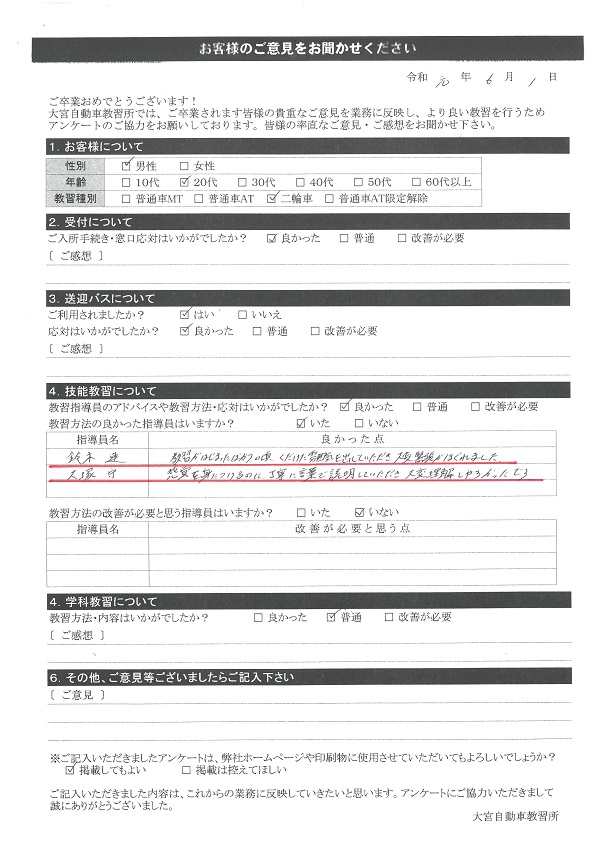 お客様のご意見をお聞かせください
令和 元 年 6 月 1 日
ご卒業おめでとうございます！
大宮自動車教習所では、ご卒業されます皆様の貴重なご意見を業務に反映し、より良い教習を行うため
アンケートのご協力をお願いしております。皆様の率直なご意見・ご感想をお聞かせ下さい。
1. お客様について
性別 ☑ 男性 □ 女性
年齢 □ 10代 ☑ 20代 □ 30代 □ 40代 □ 50代 □ 60代以上
教習種別 □ 普通車MT □ 普通車AT ☑ 二輪車 □ 普通車AT限定解除
2. 受付について
ご入所手続き・窓口応対はいかがでしたか？ ☑ 良かった □ 普通 □ 改善が必要
［ ご感想 ］
3. 送迎バスについて
ご利用されましたか？ ☑ はい □ いいえ
応対はいかがでしたか？ ☑ 良かった □ 普通 □ 改善が必要
［ ご感想 ］
4. 技能教習について
教習指導員のアドバイスや教習方法・応対はいかがでしたか？ ☑ 良かった □ 普通 □ 改善が必要
教習方法の良かった指導員はいますか？ ☑ いた □ いない
指導員名 良かった点
鈴木 教習がはじまったばかりの頃 くだけた雰囲気を出していただき 大変緊張がほぐれました
大塚 守 感覚を身につけるのに、丁寧に言葉で説明していただき 大変理解しやすかったです
教習方法の改善が必要と思う指導員はいますか？ □ いた ☑ いない
指導員名 改善が必要と思う点
4. 学科教習について
教習方法・内容はいかがでしたか？ □ 良かった ☑ 普通 □ 改善が必要
［ ご感想 ］
6. その他、ご意見等ございましたらご記入下さい
［ ご意見 ］
※ご記入いただきましたアンケートは、弊社ホームページや印刷物に使用させていただいてもよろしいでしょうか？
☑ 掲載してもよい □ 掲載は控えてほしい
ご記入いただきました内容は、これからの業務に反映していきたいと思います。アンケートにご協力いただきまして
誠にありがとうございました。
大宮自動車教習所